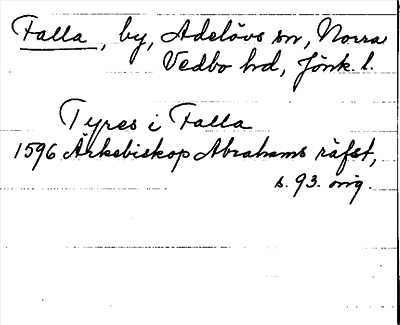 Falla, by, Adelövs sn, Norra
Vedbo hd, Jönk. l.
Tyres i Falla
1596 Ärkebiskop Abrahams räfst,
s. 93. orig.